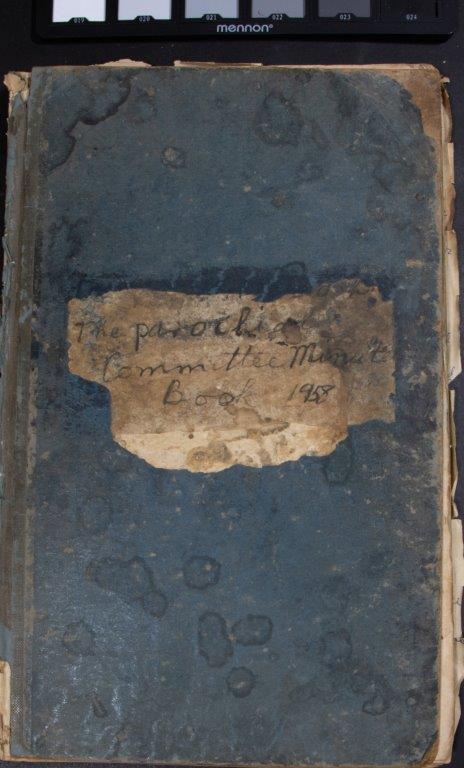 019 020 021 022 023 024
mennon
The parochial
Committee Minute
Book 1958